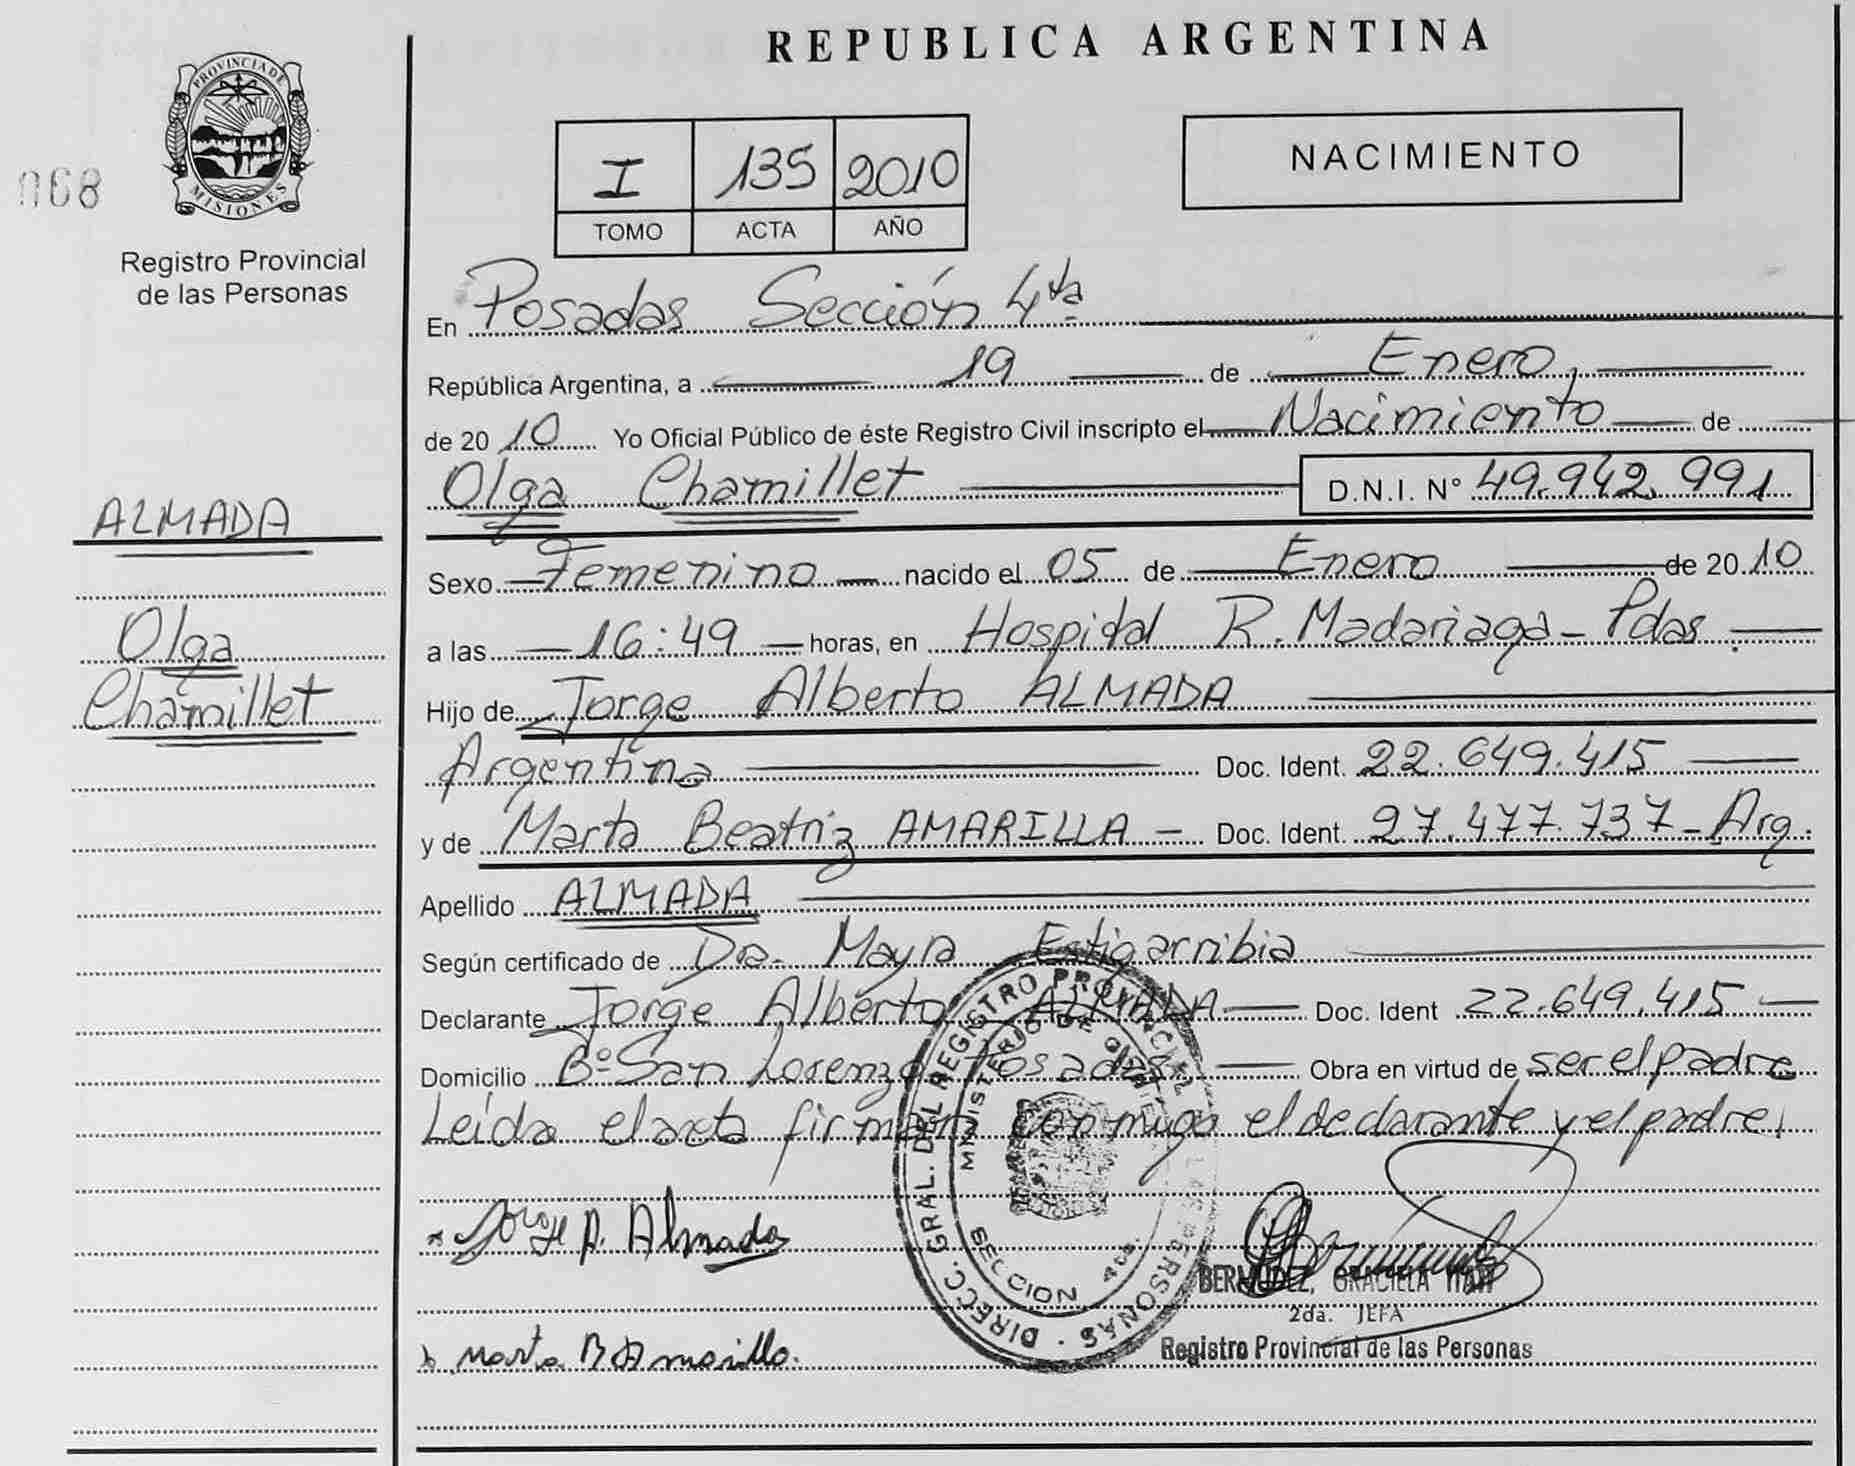 REPUBLICA ARGENTINA
PROVINCIA DE
MISIONES
068
Registro Provincial
de las Personas
I 135 2010
TOMO ACTA AÑO
NACIMIENTO
En Posadas Sección 4ta
República Argentina, a 19 de Enero,
de 2010 Yo Oficial Público de éste Registro Civil inscripto el Nacimiento de
Olga Chamillet D.N.I. N° 49.942.991
ALMADA
Olga
Chamillet
Sexo Femenino nacido el 05 de Enero de 2010
a las 16:49 horas, en Hospital R. Madariaga - Pdas.
Hijo de Jorge Alberto ALMADA
Argentina Doc. Ident. 22.649.415
y de Marta Beatriz AMARILLA - Doc. Ident. 27.477.737 - Arg.
Apellido ALMADA
Según certificado de Dra. Mayra Estigarribia
Declarante Jorge Alberto ALMADA Doc. Ident 22.649.415
Domicilio Bº San Lorenzo Posadas Obra en virtud de ser el padre
Leída el acta firman conmigo el declarante y el padre,
Jorge A. Almada
DIRECC. GRAL. DEL REGISTRO PROVINCIAL DE LAS PERSONAS
MINISTERIO DE GOBIERNO
SECCION 4ta.
BERMUDEZ, GRACIELA
2da. JEFA
Registro Provincial de las Personas
Marta B Amarilla.